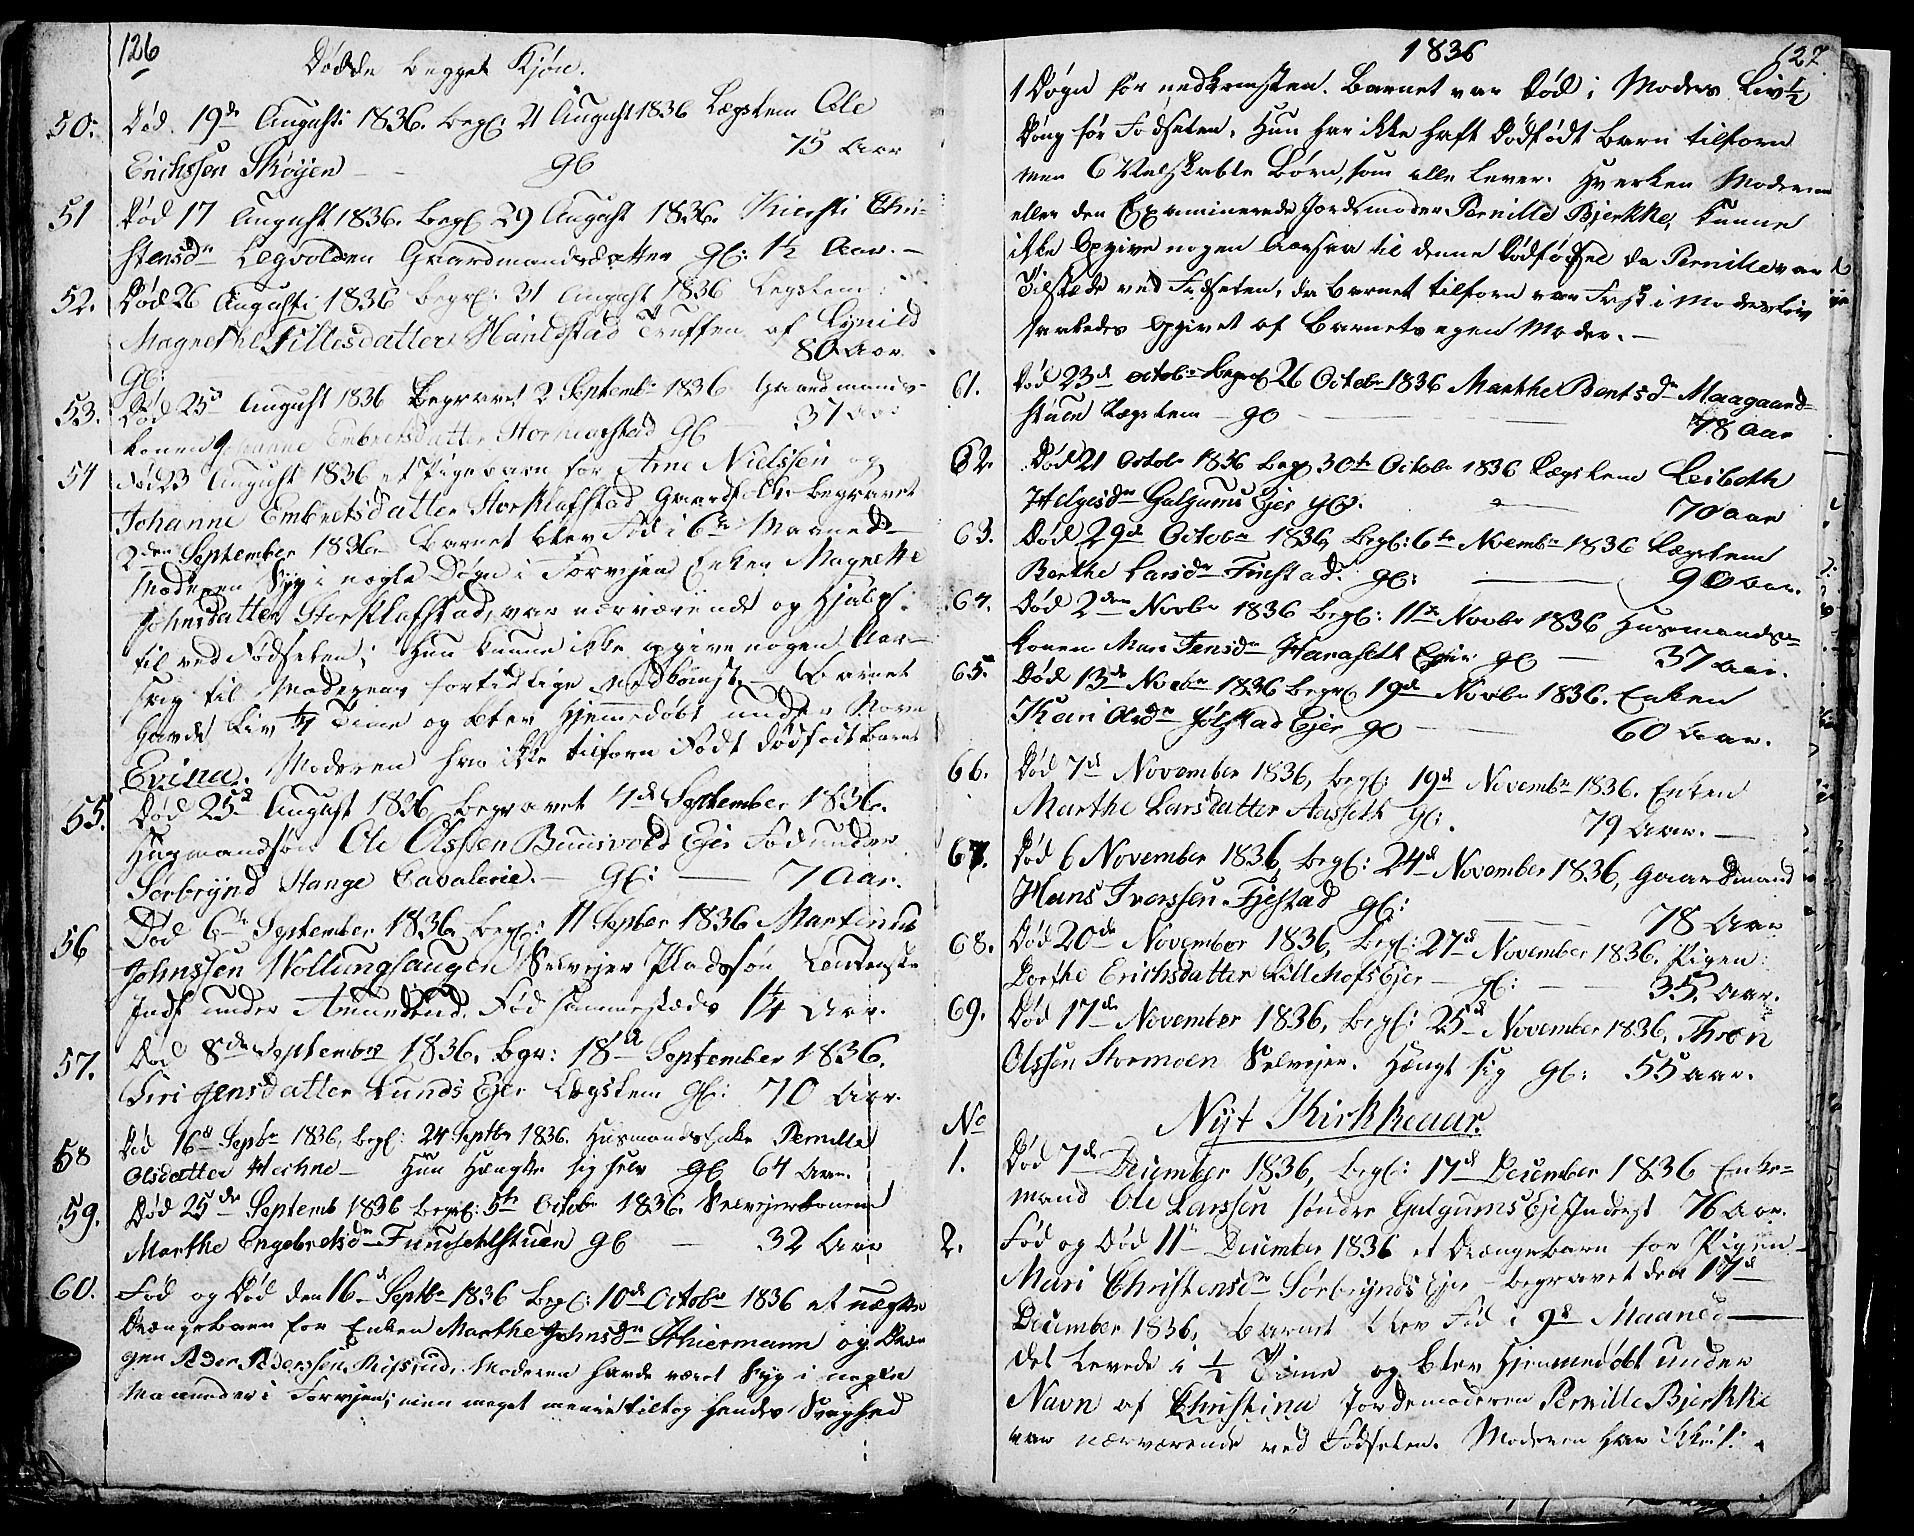 126
Dødde begget Kjøn.
50. Død 19de Augusti 1836. begr: 21 August 1836 Lægslem Ole
Erichssen Skøyen — gl 75 Aar
51 Død 17 August 1836. begr 29 August 1836. Kiersti Chri-
stensdr Legvolden Gaardmandsdatter gl: 1½ Aar. —
52. Død 26 Augusti 1836 begr: 31 August 1836 Legslem
Magnethe Nillesdatter truffen af Lynild
gl: 80 Aar
53. Død 25d August 1836 Begravet 2 Septembr 1836 Gaardmands-
konen Johanne Embretsdatter gl 37 Aar
54 Fød 23 August 1836 et Pigebarn for Arne Nielssen og
Johanne Embretsdatter Storklafstad Gaardfolk begravet
2den September 1836. Barnet blev Fød i 6te Maaned
Moderen Syg i nogle Døgn i Forvejen Enken Magnethe
Johnsdatter Storklafstad, var nærværende og Hjalp
til ved Fødselen; Hun kunne ikke opgive nogen Aar-
sag til Moderens fortidlige Nedkomst. — Barnet
havde Liv ¼ Time og blev Hjemmedøbt under Navn
Evina. Moderen har ikke tilforn Født dødfødt Barn
55. Død 25d August 1836 begravet 4de September 1836.
Husmandssøn Ole Olssen Ejer Fød under
Sørbrynd Stange Cavalerie. — gl: — 7 Aar.
56 Død 6te September 1836. begr: 11 Septber 1836 Martinus
Johnssen Wollunghaugen Selvejer Pladssøn
Inds under Amundrud. Fød sammesteds 1¼ Aar.
57. Død 8de September 1836. bgr: 18d September 1836.
Siri Jensdatter Lunds Ejer Lægslem gl: 70 Aar.
58 Død 16d Septbr 1836, begr: 24 Septbr 1836. Husmandsenke Pernille
Olsdatter — Hun Hængte sig selv gl 64 Aar.
59. Død 25de Septemb 1836 begr: 5te Octobr 1836. Selvejerkonen
Marthe Engebretsdr gl — 32 Aar
60. Fød og Død den 16d Septbr 1836 begr: 10de Octobr 1836 et uægte
Drængebarn for Enken Marthe Johnsdr og Dren
gen Peder Pederssen. Moderen havde været Syg i nogle
Maaneder i Forvejen; men meget meere tiltog Hendes Svaghed
1836
127.
1 Døgn før nedkomsten. Barnet var Død i Moders Liv ½
Døng før Fødselen, Hun har ikke haft Dødfødt Barn tilforn
men 6 Velskabte Børn, som alle lever. Hverken Moderen
eller den Examinerede Jordemoder Pernille Bjerkke, kunne
ikke opgive nogen Aarsag til denne Dødfødsel da Pernille var
Tilstede ved Fødselen, da Barnet tilforn var Frisk i Moders Liv
saaledes opgivet af Barnets egen Moder. —
61. Død 23d Octobr begr 26 Octobr 1836 Marthe Bentsdr Maagaard-
stuen Lægslem — gl — 78 Aar
62. Død 21 Octobr 1836 begr 30te Octobr 1836 Lægslem Lisbeth
Helgesdr Galgums Ejer gl. 70 Aar
63. Død 29de Octobr 1836, begr: 6te Novembr 1836 Lægslem
Berthe Larsdr Finstad. gl: — 90 Aar.
64. Død 2den Novbr 1836 begr: 11te Novbr 1836 Husmands-
konen Mari Jensdr Ejer gl — 37 Aar.
65. Død 13de Novbr 1836 begr 19de Novbr 1836. Enken
Kari Olsdr Jølstad Ejer gl — 60 Aar.
66. Død 7de November 1836, begr: 19de Novembr 1836. Enken
Marthe Larsdatter Aasseth gl: 79 Aar. —
67. Død 6 November 1836, begr: 24de November 1836, Gaardmand
Hans Iverssen Fjestad gl: — 78 Aar
68. Død 20de November 1836, begr: 27de November 1836. Pigen
Dorthe Erichsdatter Lillehofs Ejer — gl: — 35. Aar.
69. Død 17de November 1836, begr: 25d November 1836, Thron
Olssen Stormoen Selvejer. Hængt sig gl: 55 Aar.
No Nyt Kirkkeaar.
1. Død 7de December 1836, begr: 17de December 1836 Enke-
mand Ole Larssen søndre Galgums Eje Inderst 76 Aar.
2. Fød og Død 11te December 1836 et Drængebarn for Pigen
Mari Christensdr Sørbrynds Ejer — begravet den 17de
December 1836, barnet blev Fød i 9de Maaned —
Det Levede i ½ Time og blev Hjemmedøbt under
Navn af Christina Jordemoderen Pernille Bjerkke
var nærværende ved Fødselen. Moderen Har ikke